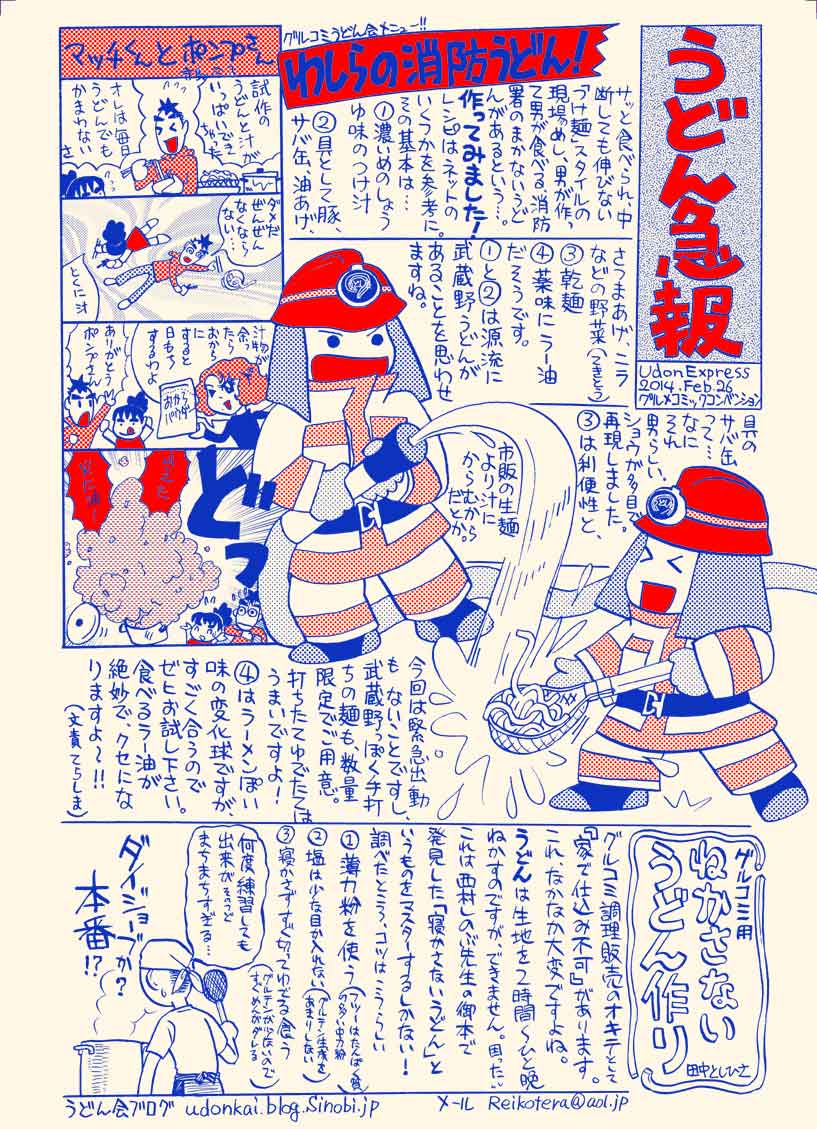 うどん急報
UdonExpress
2014.Feb.26
グルメコミックコンベンション
グルコミうどん会メニュー!!
わしらの消防うどん!
サッと食べられ、中
断しても伸びない
「つけ麺」スタイルの
現場めし、男が作っ
て男が食べる、消防
署のまかないうど
んがあるという…。
作ってみました!
レシピはネットの
いくつかを参考に。
その基本は…
①濃いめのしょう
ゆ味のつけ汁
②具として豚、
サバ缶、油あげ、
さつまあげ、ニラ
などの野菜(てきとう)
③乾麺
④薬味にラー油
だそうです。
①と②は源流に
武蔵野うどんが
あることを思わせ
ますね。
具の
サバ缶
って…
なに
それ
男らしい。
ショウが多目で
再現しました。
③は利便性と、
市販の生麺
より汁に
からむから
だとか。
今回は緊急出動
もないことですし、
武蔵野っぽく手打
ちの麺も、数量
限定でご用意。
打ちたてゆでたては
うまいですよ!
④はラーメンぽい
味の変化球ですが、
すごく合うので
ゼヒお試し下さい。
食べるラー油が
絶妙で、クセにな
りますよ〜!!
(文責てらしま)
マッチくんとポンプさん
試作の
うどんと汁が
いっぱいでき
ちゃった
オレは毎日
うどんでも
かまわない
さ
ダメだ
ぜんぜん
なくなら
ない…
とくに汁
汁物が
余ったら
おから
に
すると
日もち
するわよ
おから
パウダー
ありがとう
ポンプさん
どっ
グルコミ用
ねかさない
うどん作り
田中としひさ
グルコミ調理販売のオキテとして
『家で仕込み不可』があります。
これ、なかなか大変ですよね。
うどんは生地を2時間〜ひと晩
ねかすのですが、できません。困った…
これは西村しのぶ先生の御本で
発見した「寝かさないうどん」と
いうものをマスターするしかない!
調べたところ、コツはこうらしい
①薄力粉を使う(フツーはたんぱく質の多い中力粉)
②塩は少な目か入れない(グルテン生成をあまりしない)
③寝かさずすぐ切ってゆでる食う(グルテンが少ないんですぐめんがダレる)
何度練習しても
出来がそのつど
まちまちすぎる…
ダイジョーブか?
本番!?
うどん会ブログ udonkai.blog.Sinobi.jp
メール Reikotera@aol.jp